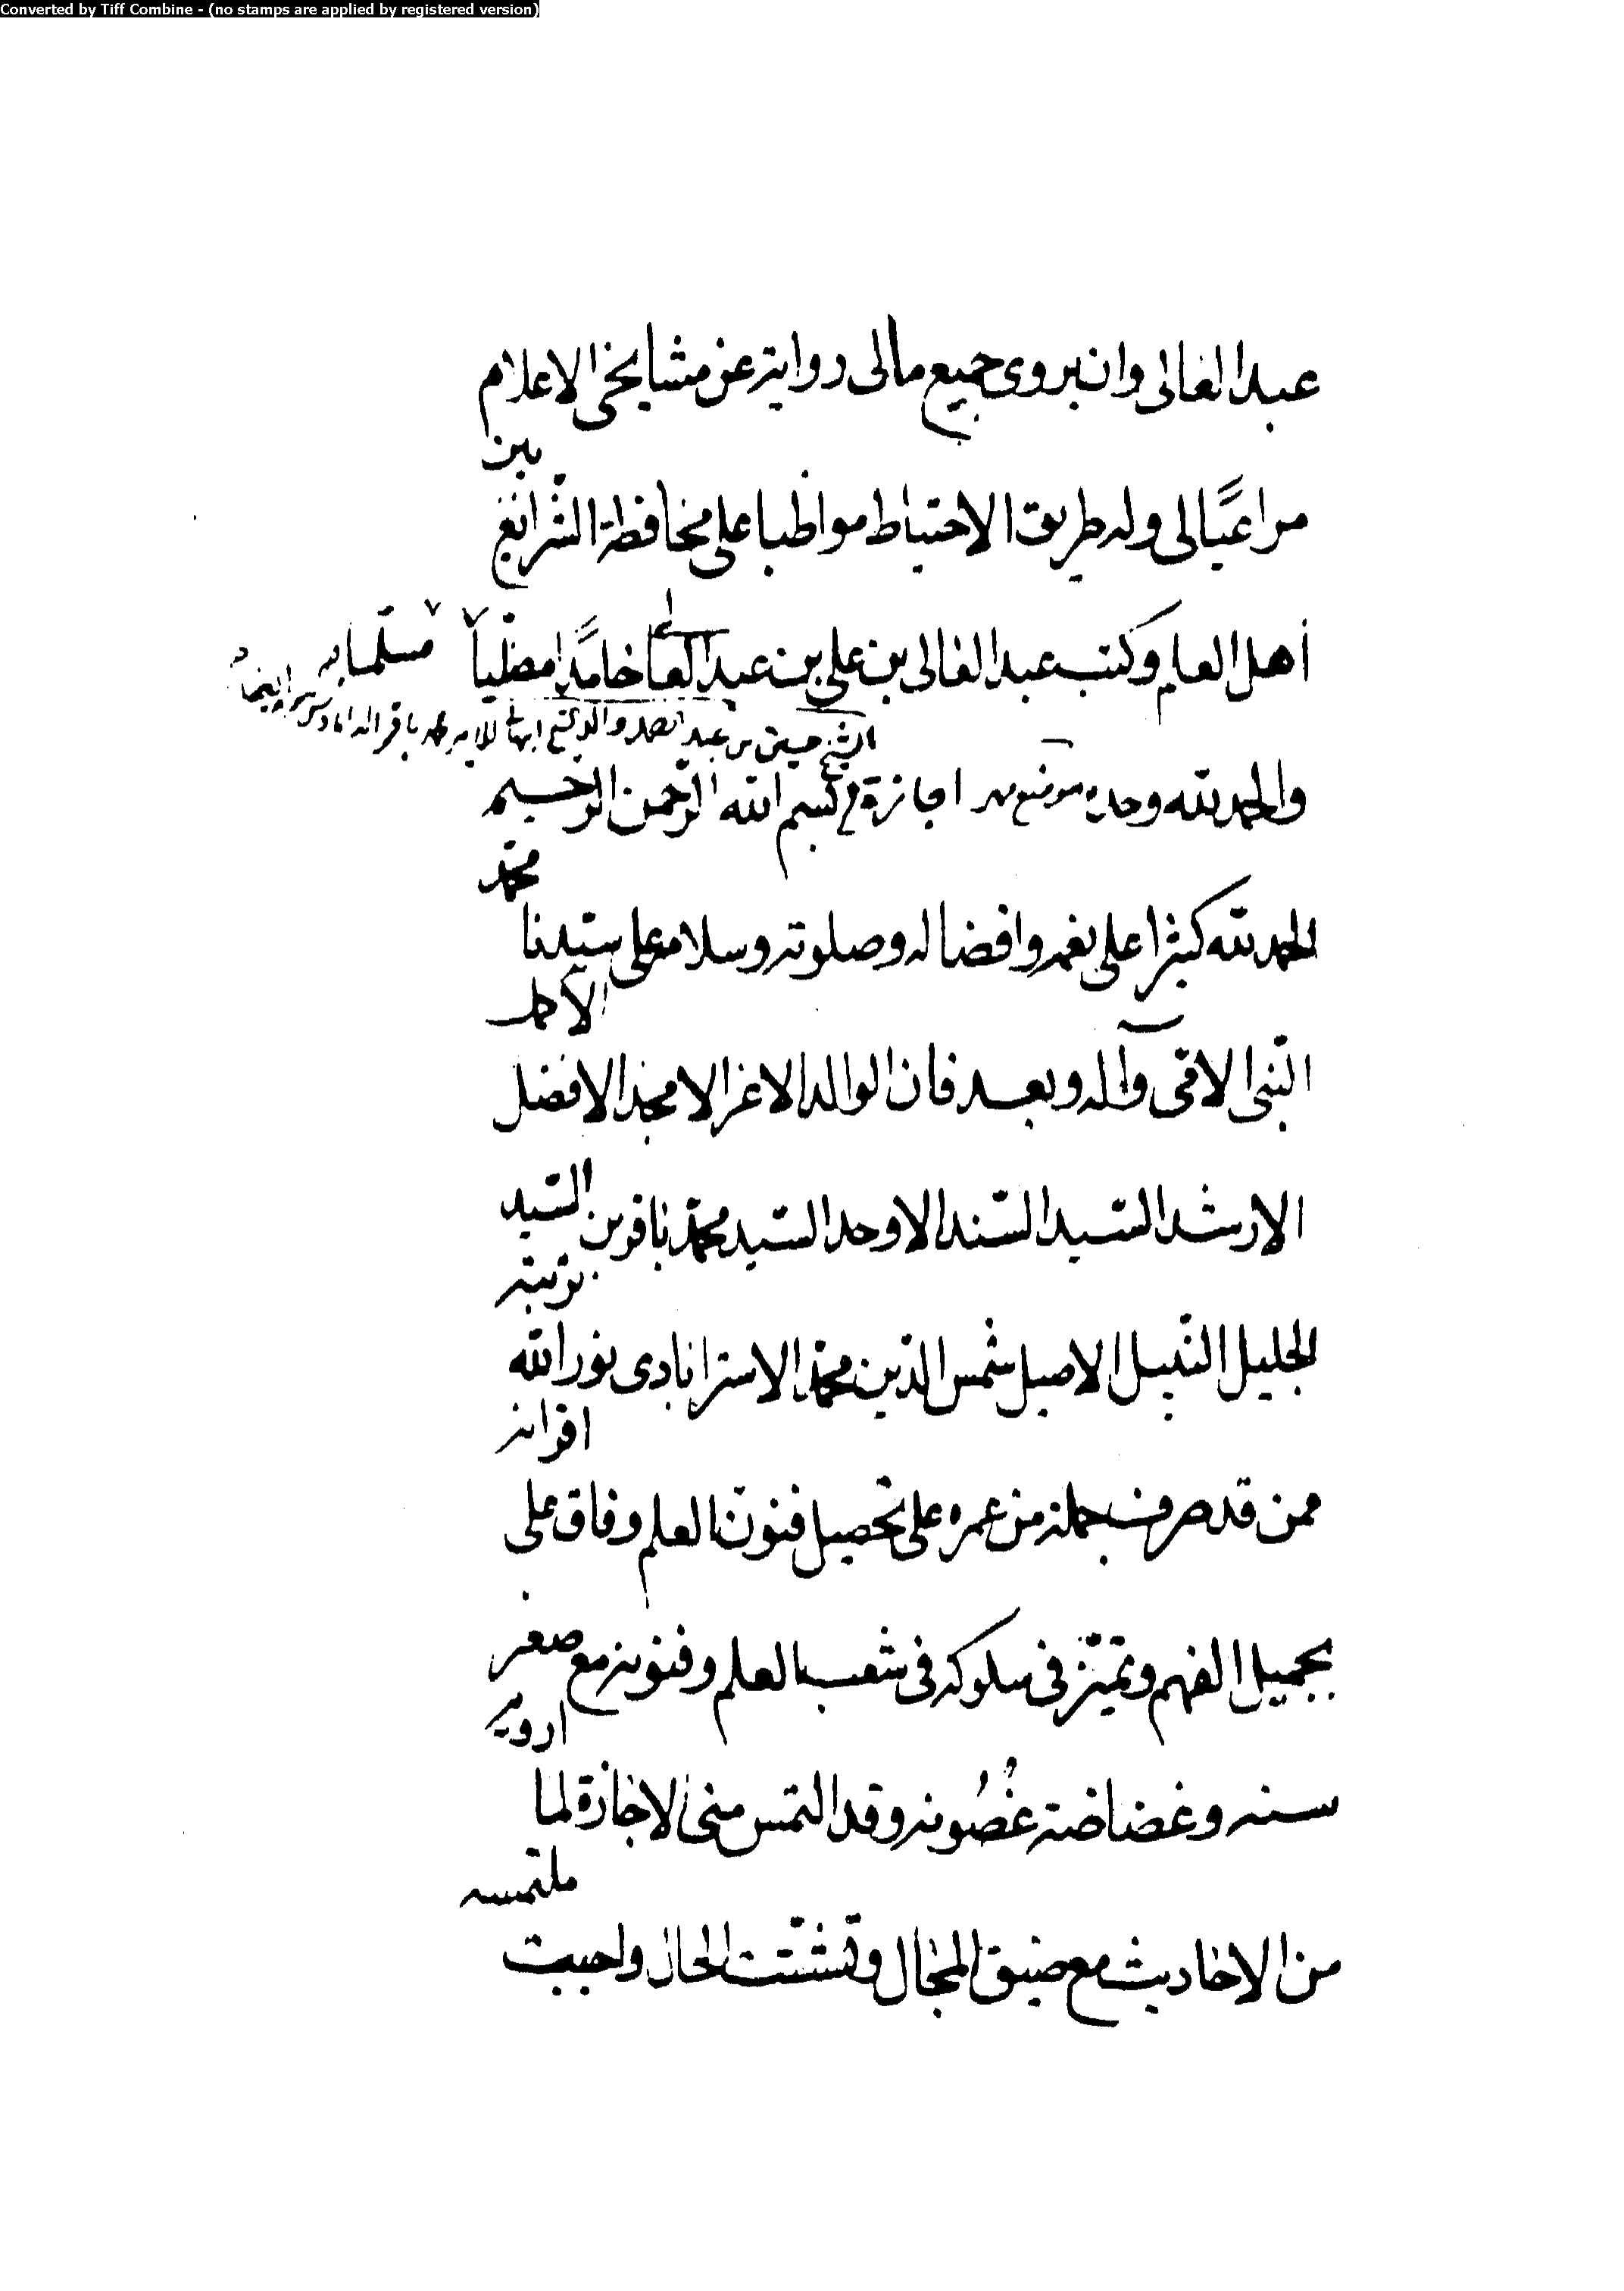 Converted by Tiff Combine - (no stamps are applied by registered version)
عبد العالى وان يروى جميع مالى روايته عن مشايخى الاعلام
مراعيًا لى وله طريق الاحتياط مواظبا على محافظة الشرائع
بين
أهل العلم وكتب عبد العالى بن على بن عبد العالى حامدًا مصليا مسلما
الشيخ حسين بن عبد الصمد والد للامير محمد باقر الداماد
والحمد لله وحده موضع اجازة بسم الله الرحمن الرحيم
الحمد لله كثيرا على نعمه وافضاله وصلوته وسلامه على سيدنا
محمد
النبى الامى وآله وبعد فان الوالد الاعز الامجد الافضل
الاكمل
الارشد السيد السند الاوحد السيد محمد باقر بن السيد
الجليل النبيل الاصيل شمس الدين محمد الاسترابادى نور الله
تربته
ممن قد صرف جملة من عمره على تحصيل فنون العلم وفاق على
اقرانه
بجميل الفهم وتميّز فى سلوكه فى شعب العلم وفنونه مع صغر
سنه وغضاضة غُصُونه وقد التمس منى الاجازة لما
ارويه
من الاحاديث مع ضيق المجال وتشتت الحال واجبت
ملتمسه